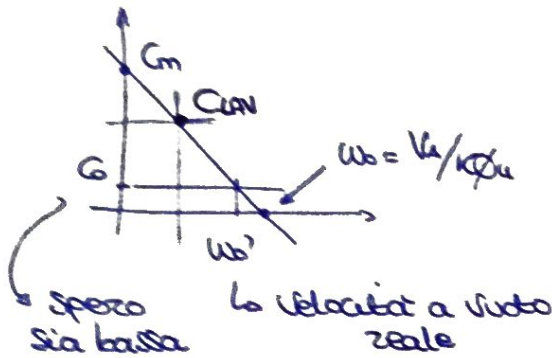 Cm
CLAV
C0
ω0 = Vu/kϕu
ω0'
spero
sia bassa
↳ velocità a vuoto
reale